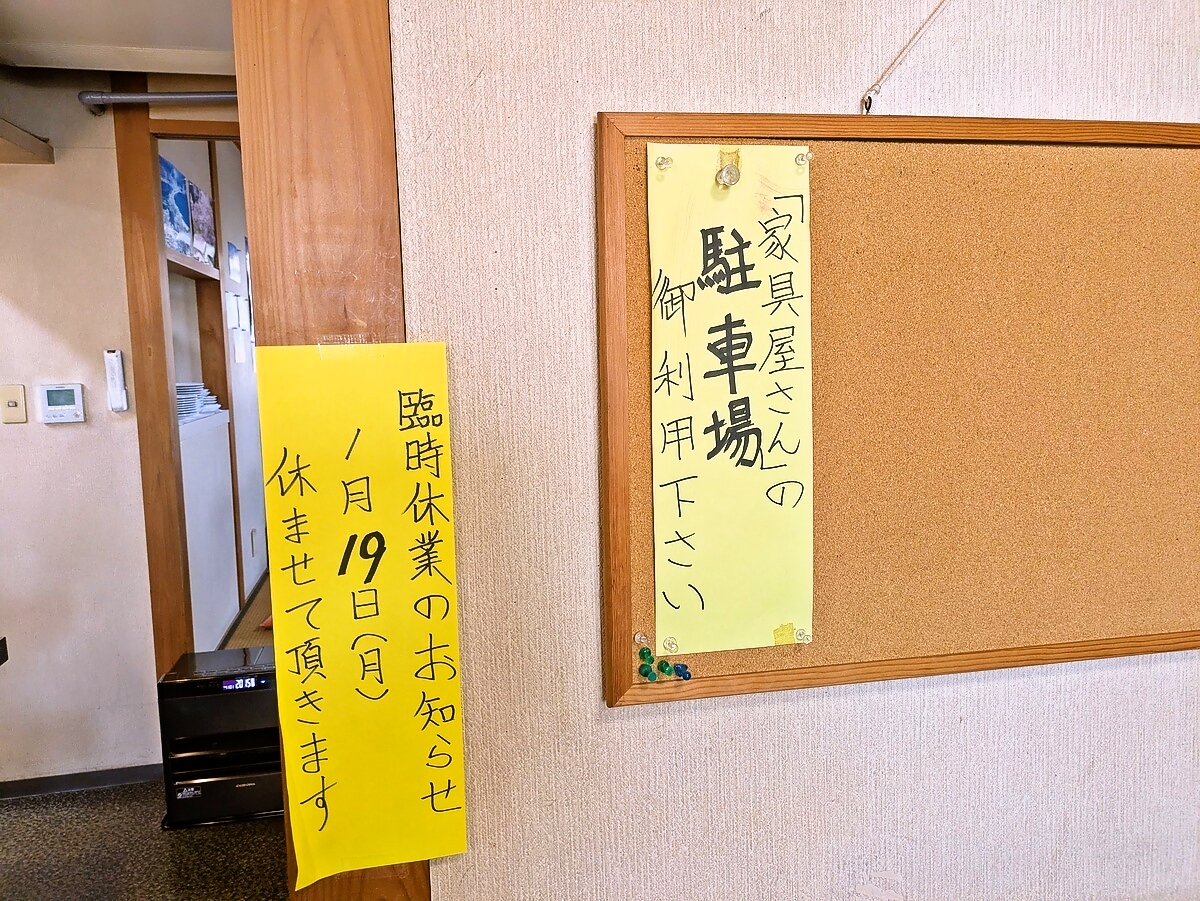 「家具屋さん」の
駐車場
御利用下さい
臨時休業のお知らせ
1月19日(月)
休ませて頂きます